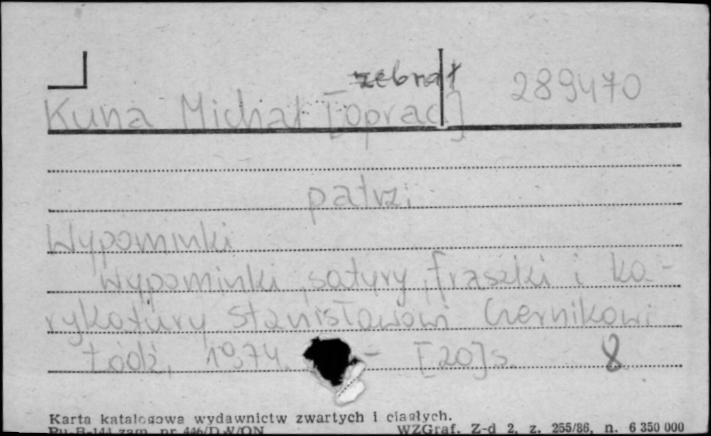 zebrał
289470
Kuna Michał [oprac]
patrz:
Wypominki
Wypominki, satyry, fraszki i ka-
rykatury Stanisławowi Czernikowi
Łódź, 1974. - [20]s. 8
Karta katalogowa wydawnictw zwartych i ciągłych.
Pu B-144 zam. nr 446/D W/ON WZGraf. Z-d 2, z. 265/86, n. 6 350 000